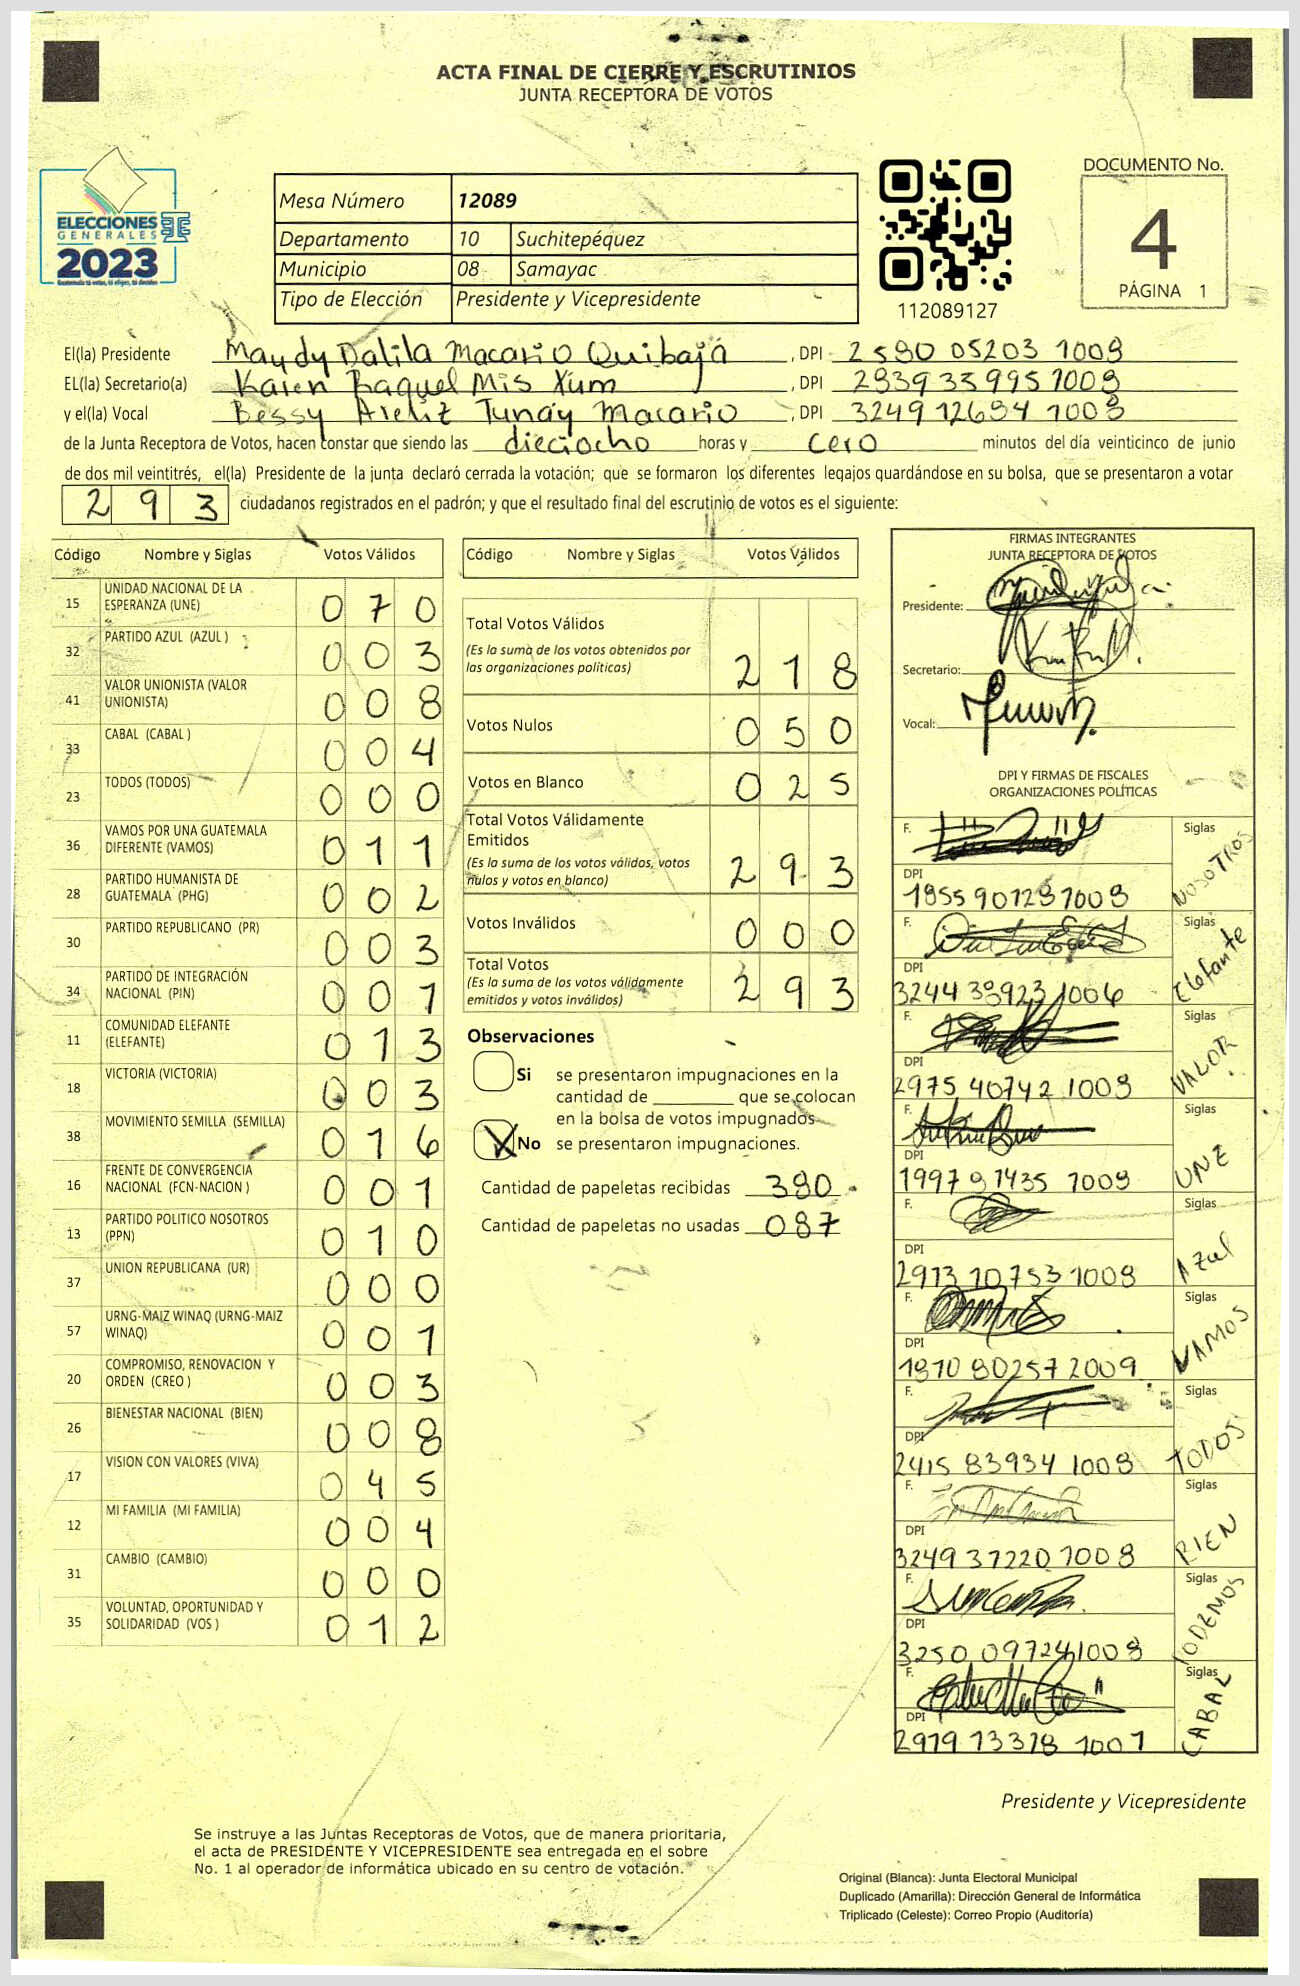 ACTA FINAL DE CIERRE Y ESCRUTINIOS
JUNTA RECEPTORA DE VOTOS
ELECCIONES
GENERALES
2023
Mesa Número 12089
Departamento 10 Suchitepéquez
Municipio 08 Samayac
Tipo de Elección Presidente y Vicepresidente
112089127
DOCUMENTO No.
4
PÁGINA 1
El(la) Presidente Maydy Dalila Macario Quibajá, DPI 2590 05203 1009
EL(la) Secretario(a) Karen Raquel Mis Xum, DPI 2939 33995 1009
y el(la) Vocal Bessy Areliz Tunay Macario, DPI 3249 12694 1009
de la Junta Receptora de Votos, hacen constar que siendo las dieciocho horas y cero minutos del día veinticinco de junio
de dos mil veintitrés, el(la) Presidente de la junta declaró cerrada la votación; que se formaron los diferentes legajos guardándose en su bolsa, que se presentaron a votar
293 ciudadanos registrados en el padrón; y que el resultado final del escrutinio de votos es el siguiente:
Código Nombre y Siglas Votos Válidos
15 UNIDAD NACIONAL DE LA ESPERANZA (UNE) 070
32 PARTIDO AZUL (AZUL ) 003
41 VALOR UNIONISTA (VALOR UNIONISTA) 008
33 CABAL (CABAL ) 004
23 TODOS (TODOS) 000
36 VAMOS POR UNA GUATEMALA DIFERENTE (VAMOS) 011
28 PARTIDO HUMANISTA DE GUATEMALA (PHG) 002
30 PARTIDO REPUBLICANO (PR) 003
34 PARTIDO DE INTEGRACIÓN NACIONAL (PIN) 001
11 COMUNIDAD ELEFANTE (ELEFANTE) 013
18 VICTORIA (VICTORIA) 003
38 MOVIMIENTO SEMILLA (SEMILLA) 016
16 FRENTE DE CONVERGENCIA NACIONAL (FCN-NACION ) 001
13 PARTIDO POLITICO NOSOTROS (PPN) 010
37 UNION REPUBLICANA (UR) 000
57 URNG-MAIZ WINAQ (URNG-MAIZ WINAQ) 001
20 COMPROMISO, RENOVACION Y ORDEN (CREO ) 003
26 BIENESTAR NACIONAL (BIEN) 008
17 VISION CON VALORES (VIVA) 045
12 MI FAMILIA (MI FAMILIA) 004
31 CAMBIO (CAMBIO) 000
35 VOLUNTAD, OPORTUNIDAD Y SOLIDARIDAD (VOS ) 012
Código Nombre y Siglas Votos Válidos
Total Votos Válidos
(Es la suma de los votos obtenidos por las organizaciones políticas) 218
Votos Nulos 050
Votos en Blanco 025
Total Votos Válidamente Emitidos
(Es la suma de los votos válidos, votos nulos y votos en blanco) 293
Votos Inválidos 000
Total Votos
(Es la suma de los votos válidamente emitidos y votos inválidos) 293
Observaciones
Si se presentaron impugnaciones en la
cantidad de ________ que se colocan
en la bolsa de votos impugnados
X No se presentaron impugnaciones.
Cantidad de papeletas recibidas 380
Cantidad de papeletas no usadas 087
FIRMAS INTEGRANTES
JUNTA RECEPTORA DE VOTOS
Presidente:
Secretario:
Vocal:
DPI Y FIRMAS DE FISCALES
ORGANIZACIONES POLÍTICAS
F. Siglas NOSOTROS
DPI
1955 90129 1009
F. Siglas Elefante
DPI
3244 39923 1006
F. Siglas VALOR
DPI
2975 40742 1009
F. Siglas UNE
DPI
1997 91435 1009
F. Siglas Azul
DPI
2913 10753 1009
F. Siglas VAMOS
DPI
1970 80257 2009
F. Siglas TODOS
DPI
2415 83934 1009
F. Siglas BIEN
DPI
3249 37220 1009
F. Siglas PODEMOS
DPI
3250 09724 1009
F. Siglas CABAL
DPI
2979 73379 1001
Presidente y Vicepresidente
Se instruye a las Juntas Receptoras de Votos, que de manera prioritaria,
el acta de PRESIDENTE Y VICEPRESIDENTE sea entregada en el sobre
No. 1 al operador de informática ubicado en su centro de votación.
Original (Blanca): Junta Electoral Municipal
Duplicado (Amarilla): Dirección General de Informática
Triplicado (Celeste): Correo Propio (Auditoría)